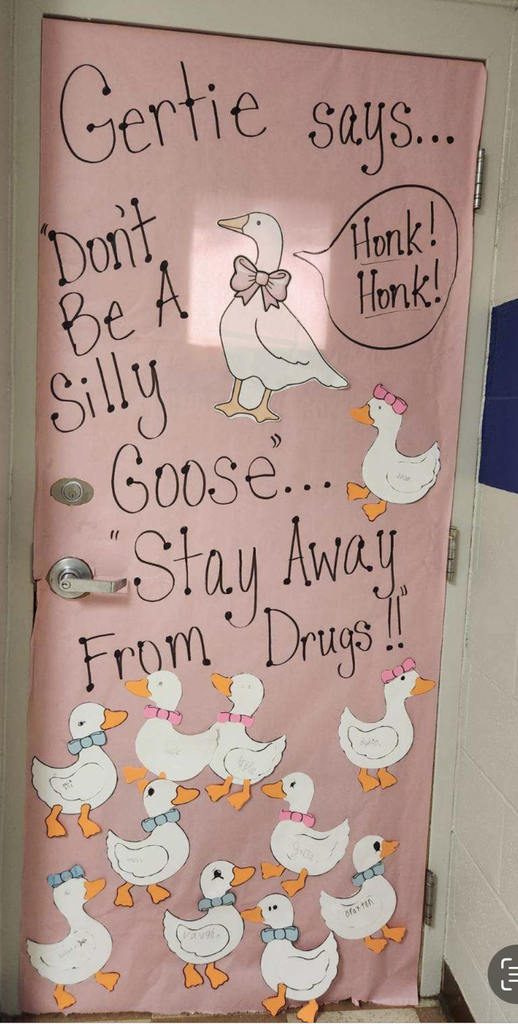 Gertie says...
"Don't
Be A
Silly
Goose"...
Honk!
Honk!
"Stay Away
From Drugs!!"
Braxton